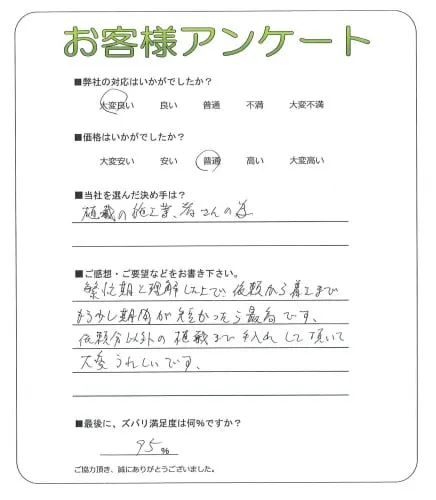 お客様アンケート
■弊社の対応はいかがでしたか？
大変良い 良い 普通 不満 大変不満
■価格はいかがでしたか？
大変安い 安い 普通 高い 大変高い
■当社を選んだ決め手は？
植栽の施工業、
■ご感想・ご要望などをお書き下さい。
繁忙期と理解した上で、依頼から着工まで
もう少し期間が短かったら最高です。
依頼分以外の植栽まで手入れして頂いて
大変うれしいです。
■最後に、ズバリ満足度は何％ですか？
95％
ご協力頂き、誠にありがとうございました。